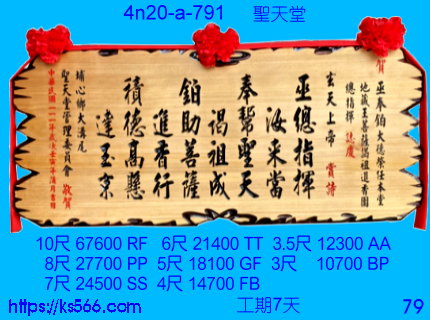 4n20-a-791 聖天堂
賀
巫奉鉑大德榮任本堂
地藏王菩薩謁祖進香團
總指揮 誌慶
玄天上帝 賞詩
巫總指揮
汝來當
奉幫聖天
謁祖成
鉑助菩薩
進香行
積德高懸
達玉京
埔心鄉大溝尾
聖天堂管理委員會 敬賀
中華民國一一一年歲次壬寅年蒲月吉日
10尺 67600 RF 6尺 21400 TT 3.5尺 12300 AA
8尺 27700 PP 5尺 18100 GF 3尺 10700 BP
7尺 24500 SS 4尺 14700 FB
https://ks566.com 工期7天 79